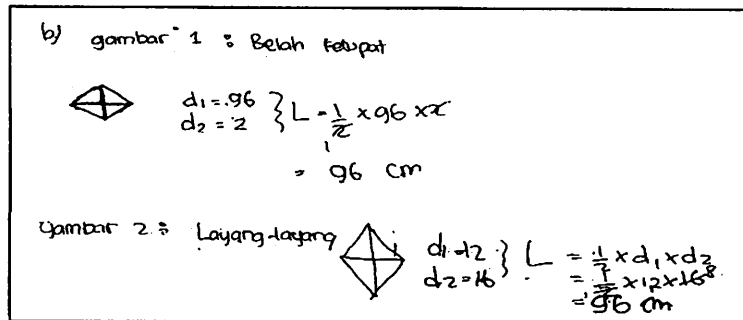 b) gambar 1 : Belah ketupat
d1 = 96
d2 = 2 } L = 1/2 × 96 × 2
1
= 96 cm
Gambar 2 : Layang-layang
d1 = 12
d2 = 16 } L = 1/2 × d1 × d2
= 1/2 × 12 × 16 8
= 96 cm